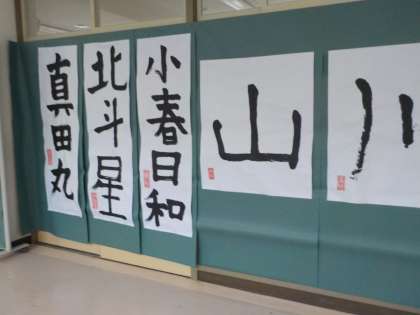 川
山
小春日和
北斗星
真田丸